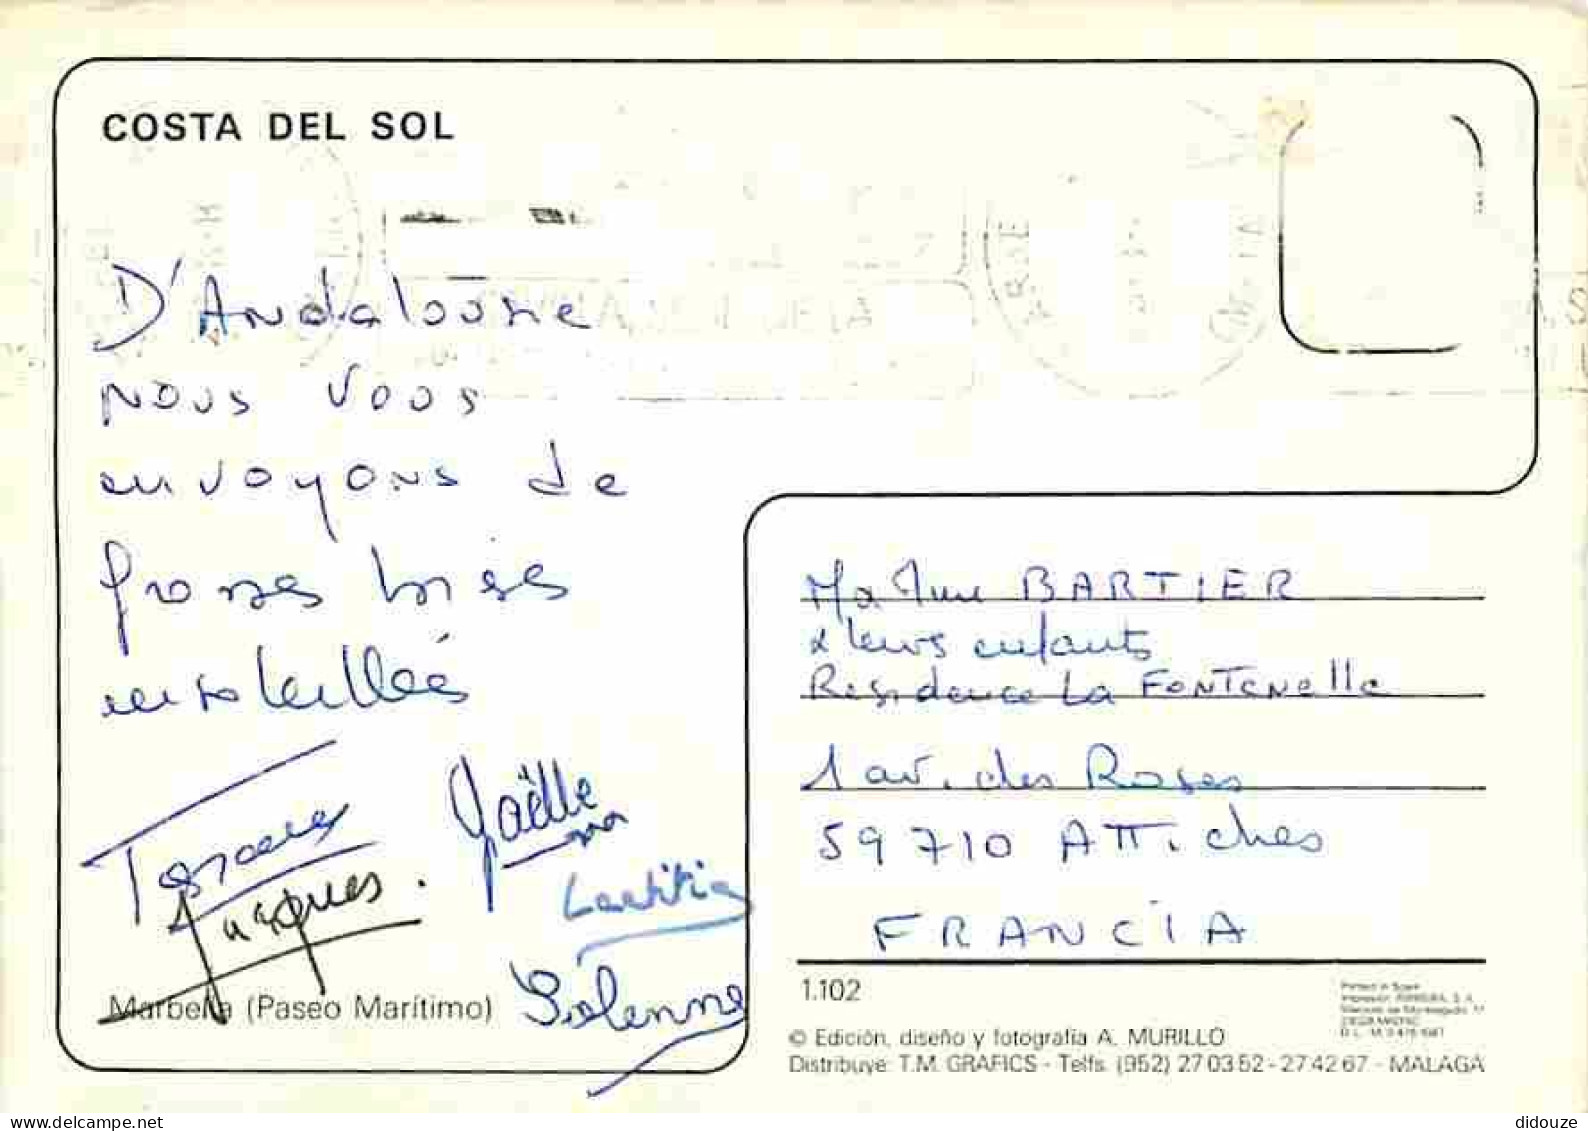 COSTA DEL SOL
D'Andalousie
nous vous
envoyons de
grosses bises
ensoleillées
Jacques.
Gaëlle
Laetitia
Solenne
Marbella (Paseo Marítimo)
BARTIER
& leurs enfants
Residence La Fontenelle
1 av. des Roses
59710 ATTiches
FRANCiA
1.102
Printed in Spain
© Edición, diseño y fotografía A. MURILLO
Distribuye: T.M. GRAFICS - Telfs. (952) 27 03 52 - 27 42 67 - MALAGA
didouze